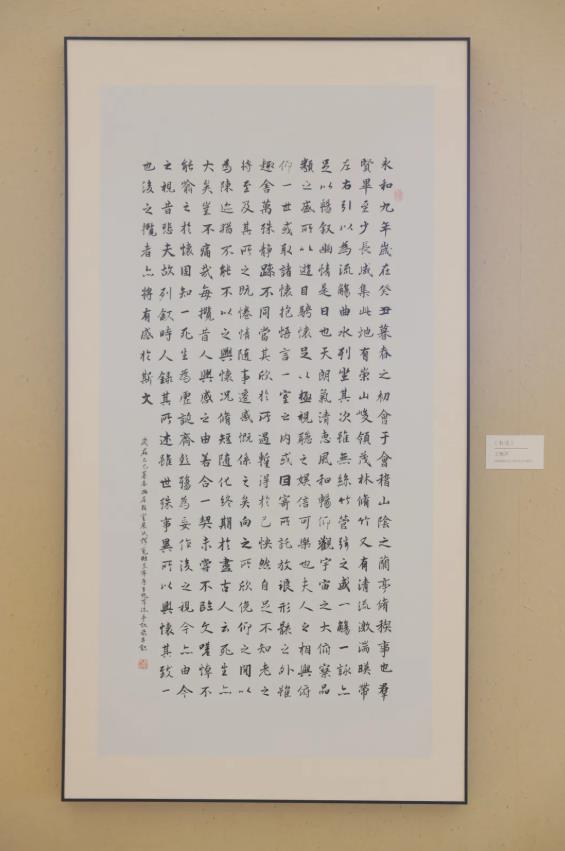 永和九年歲在癸丑暮春之初會于會稽山陰之蘭亭脩稧事也羣
賢畢至少長咸集此地有崇山峻領茂林脩竹又有清流激湍暎帶
左右引以為流觴曲水列坐其次雖無絲竹管弦之盛一觴一詠亦
足以暢敘幽情是日也天朗氣清惠風和暢仰觀宇宙之大俯察品
類之盛所以遊目騁懷足以極視聽之娛信可樂也夫人之相與俯
仰一世或取諸懷抱悟言一室之內或因寄所託放浪形骸之外雖
趣舍萬殊靜躁不同當其欣於所遇暫得於己快然自足不知老之
將至及其所之既惓情隨事遷感慨係之矣向之所欣俛仰之閒以
為陳迹猶不能不以之興懷況脩短隨化終期於盡古人云死生亦
大矣豈不痛哉每攬昔人興感之由若合一契未嘗不臨文嗟悼不
能喻之於懷固知一死生為虛誕齊彭殤為妄作後之視今亦由今
之視昔悲夫故列敘時人錄其所述雖世殊事異所以興懷其致一
也後之攬者亦將有感於斯文